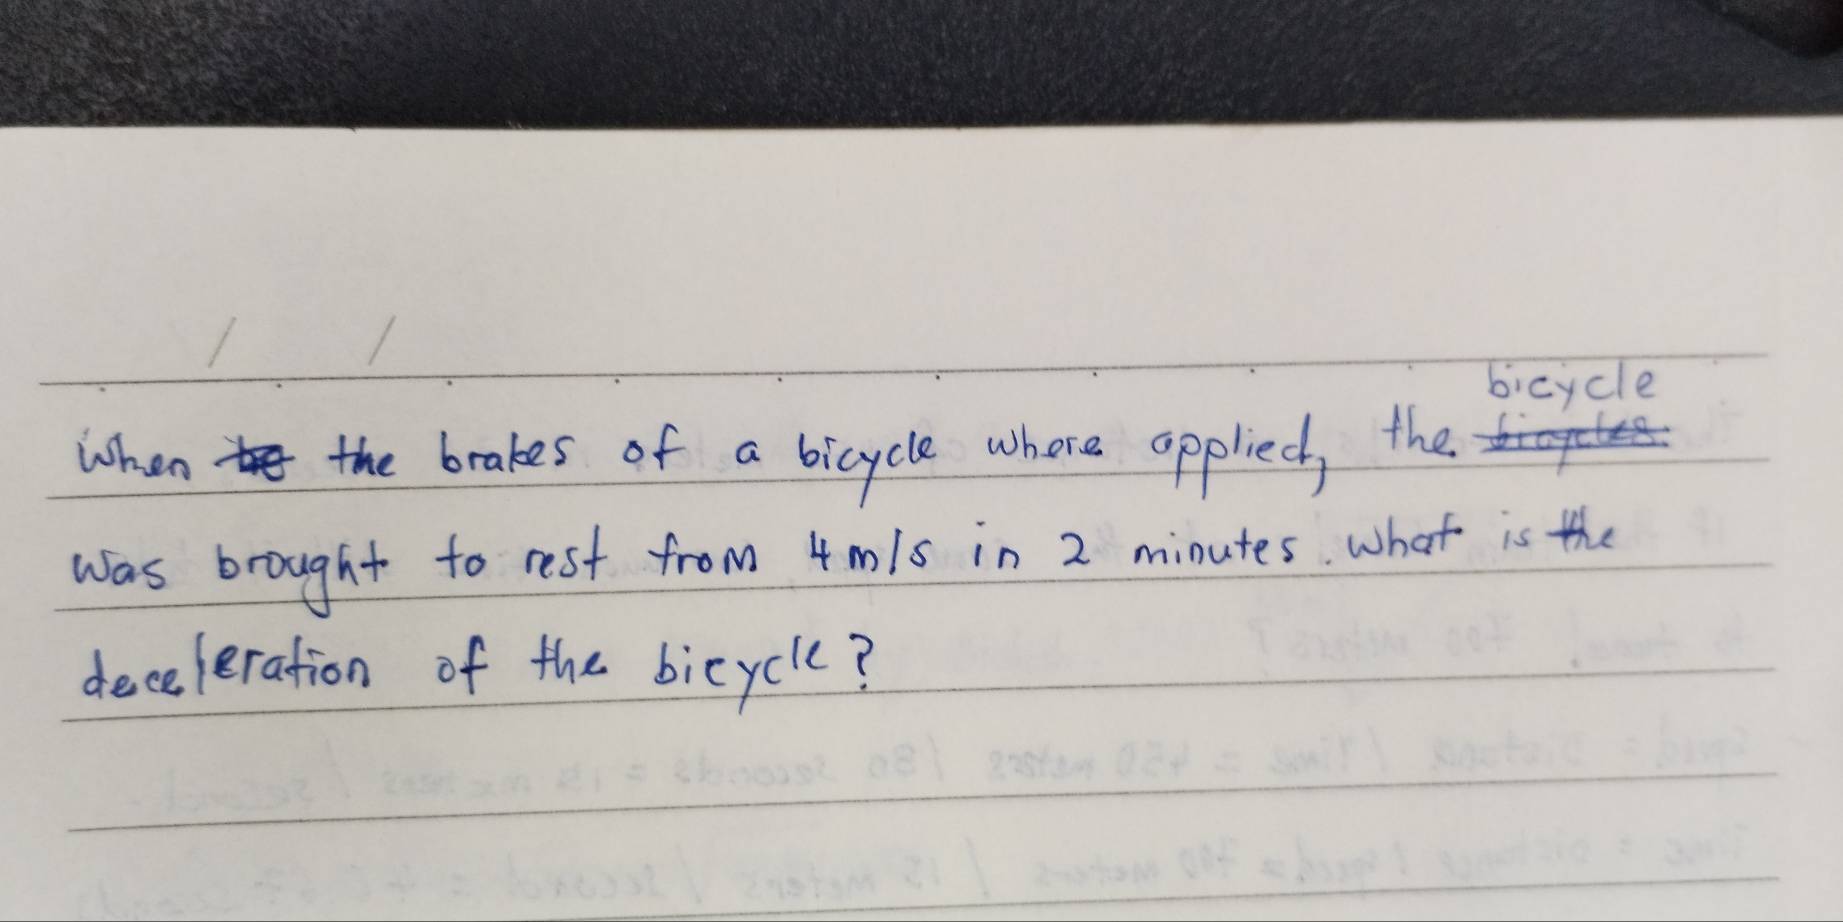 When the brakes of a bicycle where applied, the bicycle
was brought to rest from 4m/s in 2 minutes. what is the
deceleration of the bicycle?